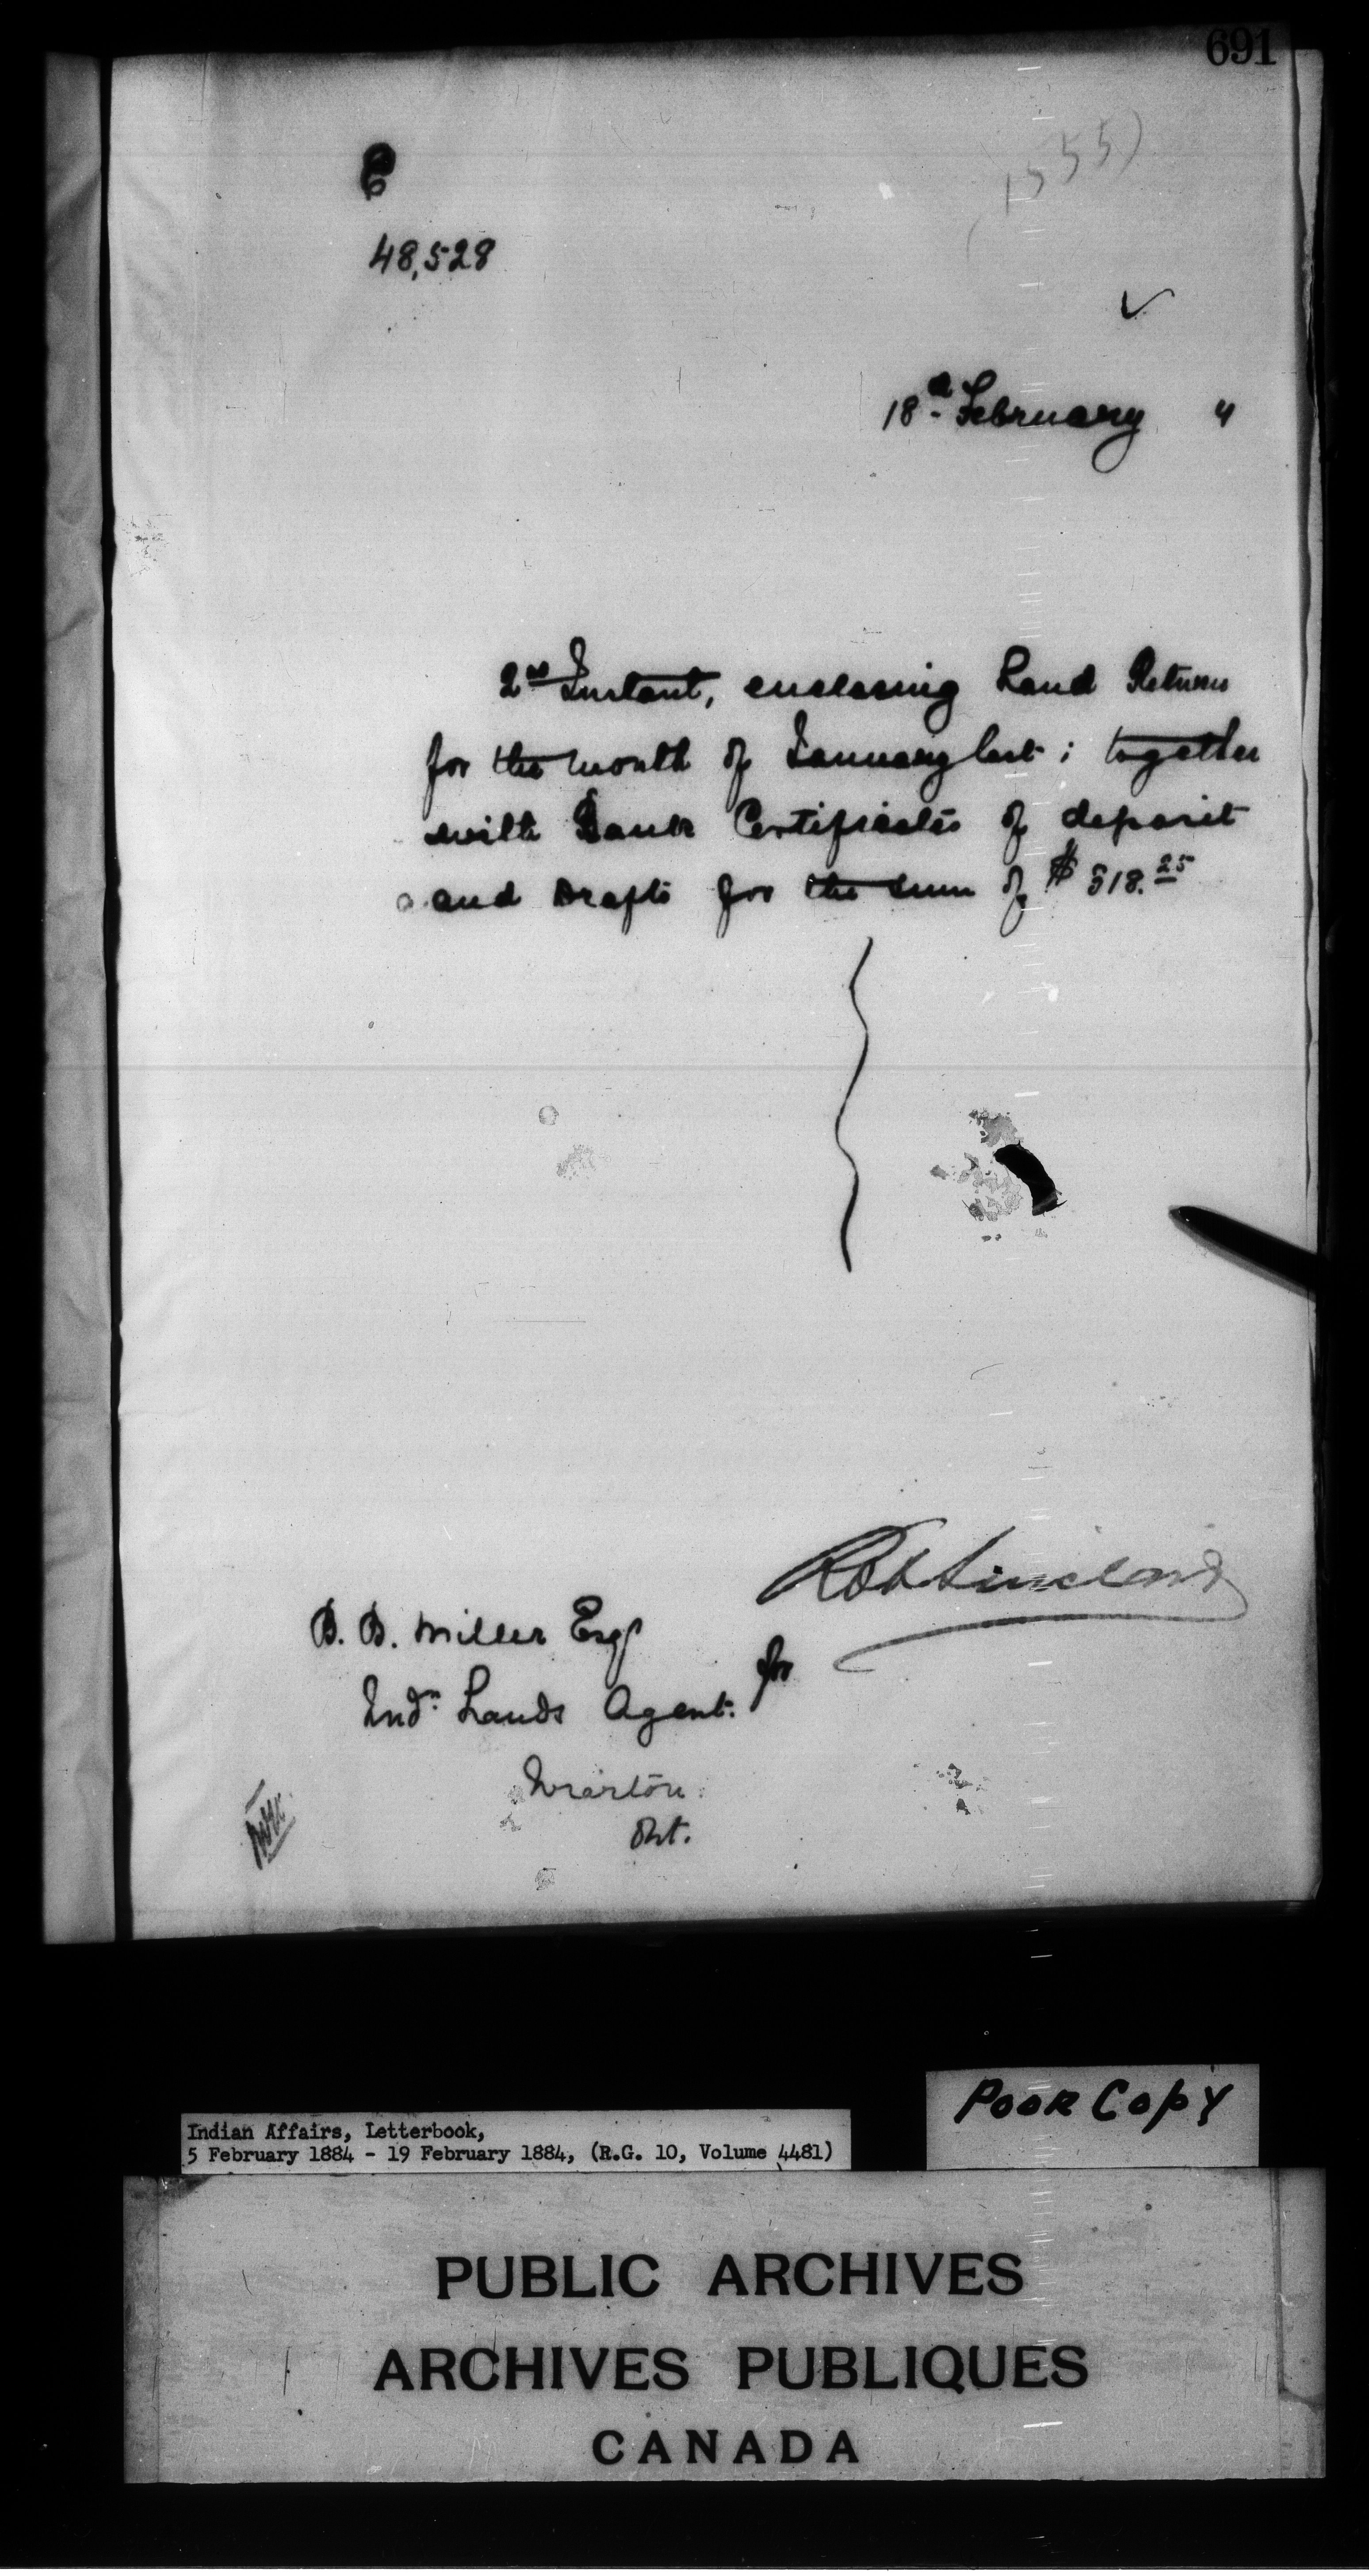 691
(1555)
48,528
18th February 4
2nd Instant, enclosing Land Returns
for the month of January last; together
with Bank Certificates of deposit
and Drafts for the sum of $ 518.25
Robt Sinclair
B. B. Miller Esqr
for
Indn Lands Agent.
Wiarton
Ont.
Poor Copy
Indian Affairs, Letterbook,
5 February 1884 - 19 February 1884, (R.G. 10, Volume 4481)
PUBLIC ARCHIVES
ARCHIVES PUBLIQUES
CANADA